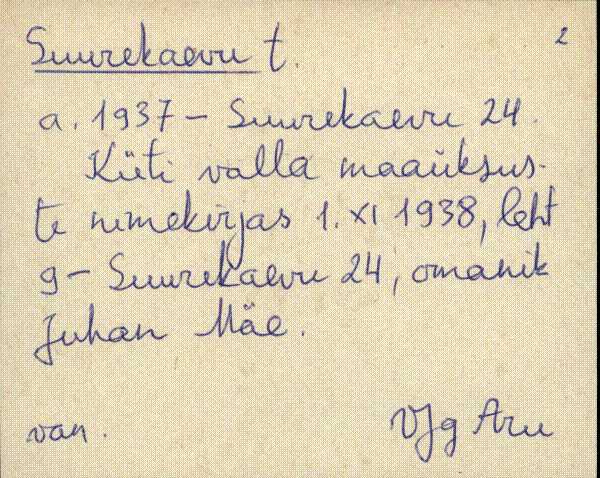 Suurekaevu t.
2
a. 1937 – Suurekaevu 24.
Küti valla maaüksus-
te nimekirjas 1. XI 1938, leht
9 – Suurekaevu 24, omanik
Juhan Mäe.
van.
VJg Aru